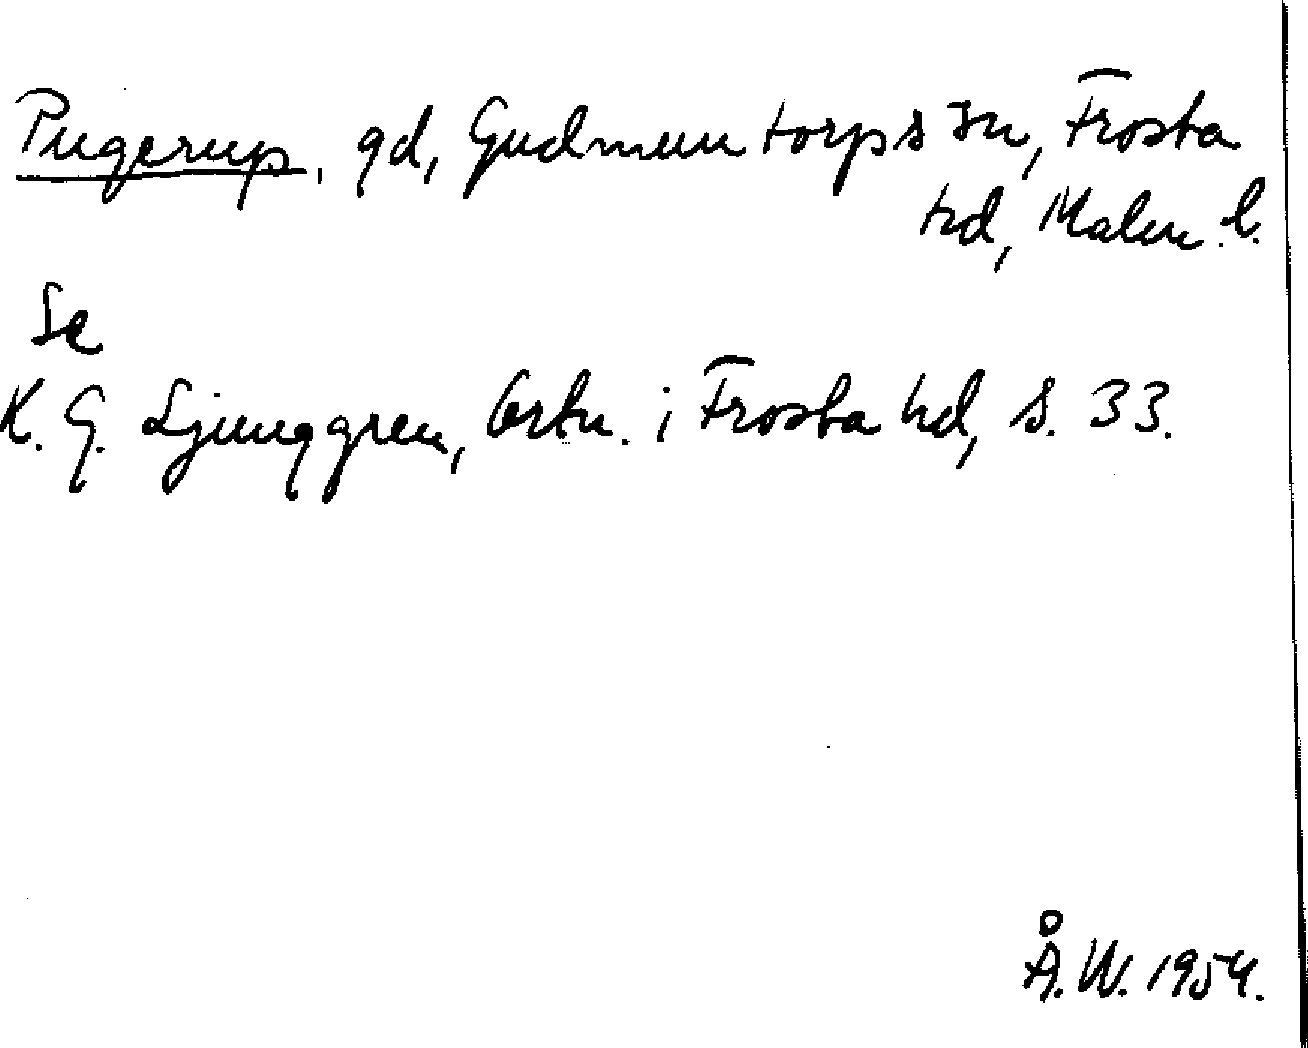 Pugerup, gd, Gudmuntorps sn, Frosta
hd, Malm. l.
Se
K. G. Ljunggren, Ortn. i Frosta hd, s. 33.
Å. W. 1954.